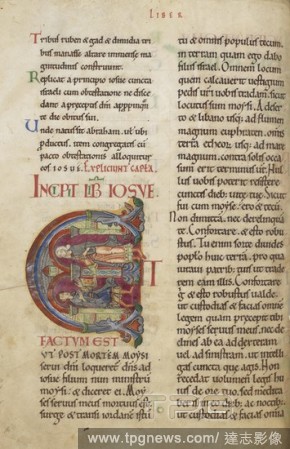 LIBER
Tribus ruben & gad & dimidia tri
bus manasse altare inmense ma
gnitudinis construunt.
Replicat a principio iosue cuncta
israel cum obtestatione ne disce
dant a preceptis dni
de obitu sui.
Unde natus sit abraham. ul ubi
israel. item congregatis
pacto obtestationis alloquitur
eos iosue. EXPLICIUNT CAPLA.
INCIPT LIB IOSVE
ET
FACTVM EST
UT POST MORTEM MOYSI
serui dni loqueret dns ad
iosue filium nun ministrū
moysi. & diceret ei. Moy
ses seruus meus mortuus est.
surge & transi iordane istū
tu & omnis populus tecum.
in terram quam ego dabo
filiis israel. Omnem locum
quem calcauerit uestigium
pedis uri uobis tradam. sicut
locutus sum moysi. A deser
to & libano usq; ad flumen
magnum euphraten. omnis
terra usq; ad mare
magnum. contra solis occa
sum erit terminus uester. Nul
lus uobis poterit resistere
cunctis dieb; uite tue. Sicut
fui cum moyse. ero & tecū.
Non dimittā. nec derelinquā
te. Confortare. & esto robus
tus. Tu enim sorte diuides
populo huic terrā. pro qua
iuraui patrib; suis ut trade
rem eam illis. Confortare
& esto robustus ualde.
ut custodias & facias omnē
legem quam precepit tibi
moyses seruus meus. nec de
clines ab ea ad dexteram
uel ad sinistram. ut intelli
gas cuncta que agis. Non
recedat uolumen legis hui
us de ore tuo. sed medita
beris in eo dieb; ac noctib;
ut custodias & facias omnia
www.tpgnews.com/達志影像